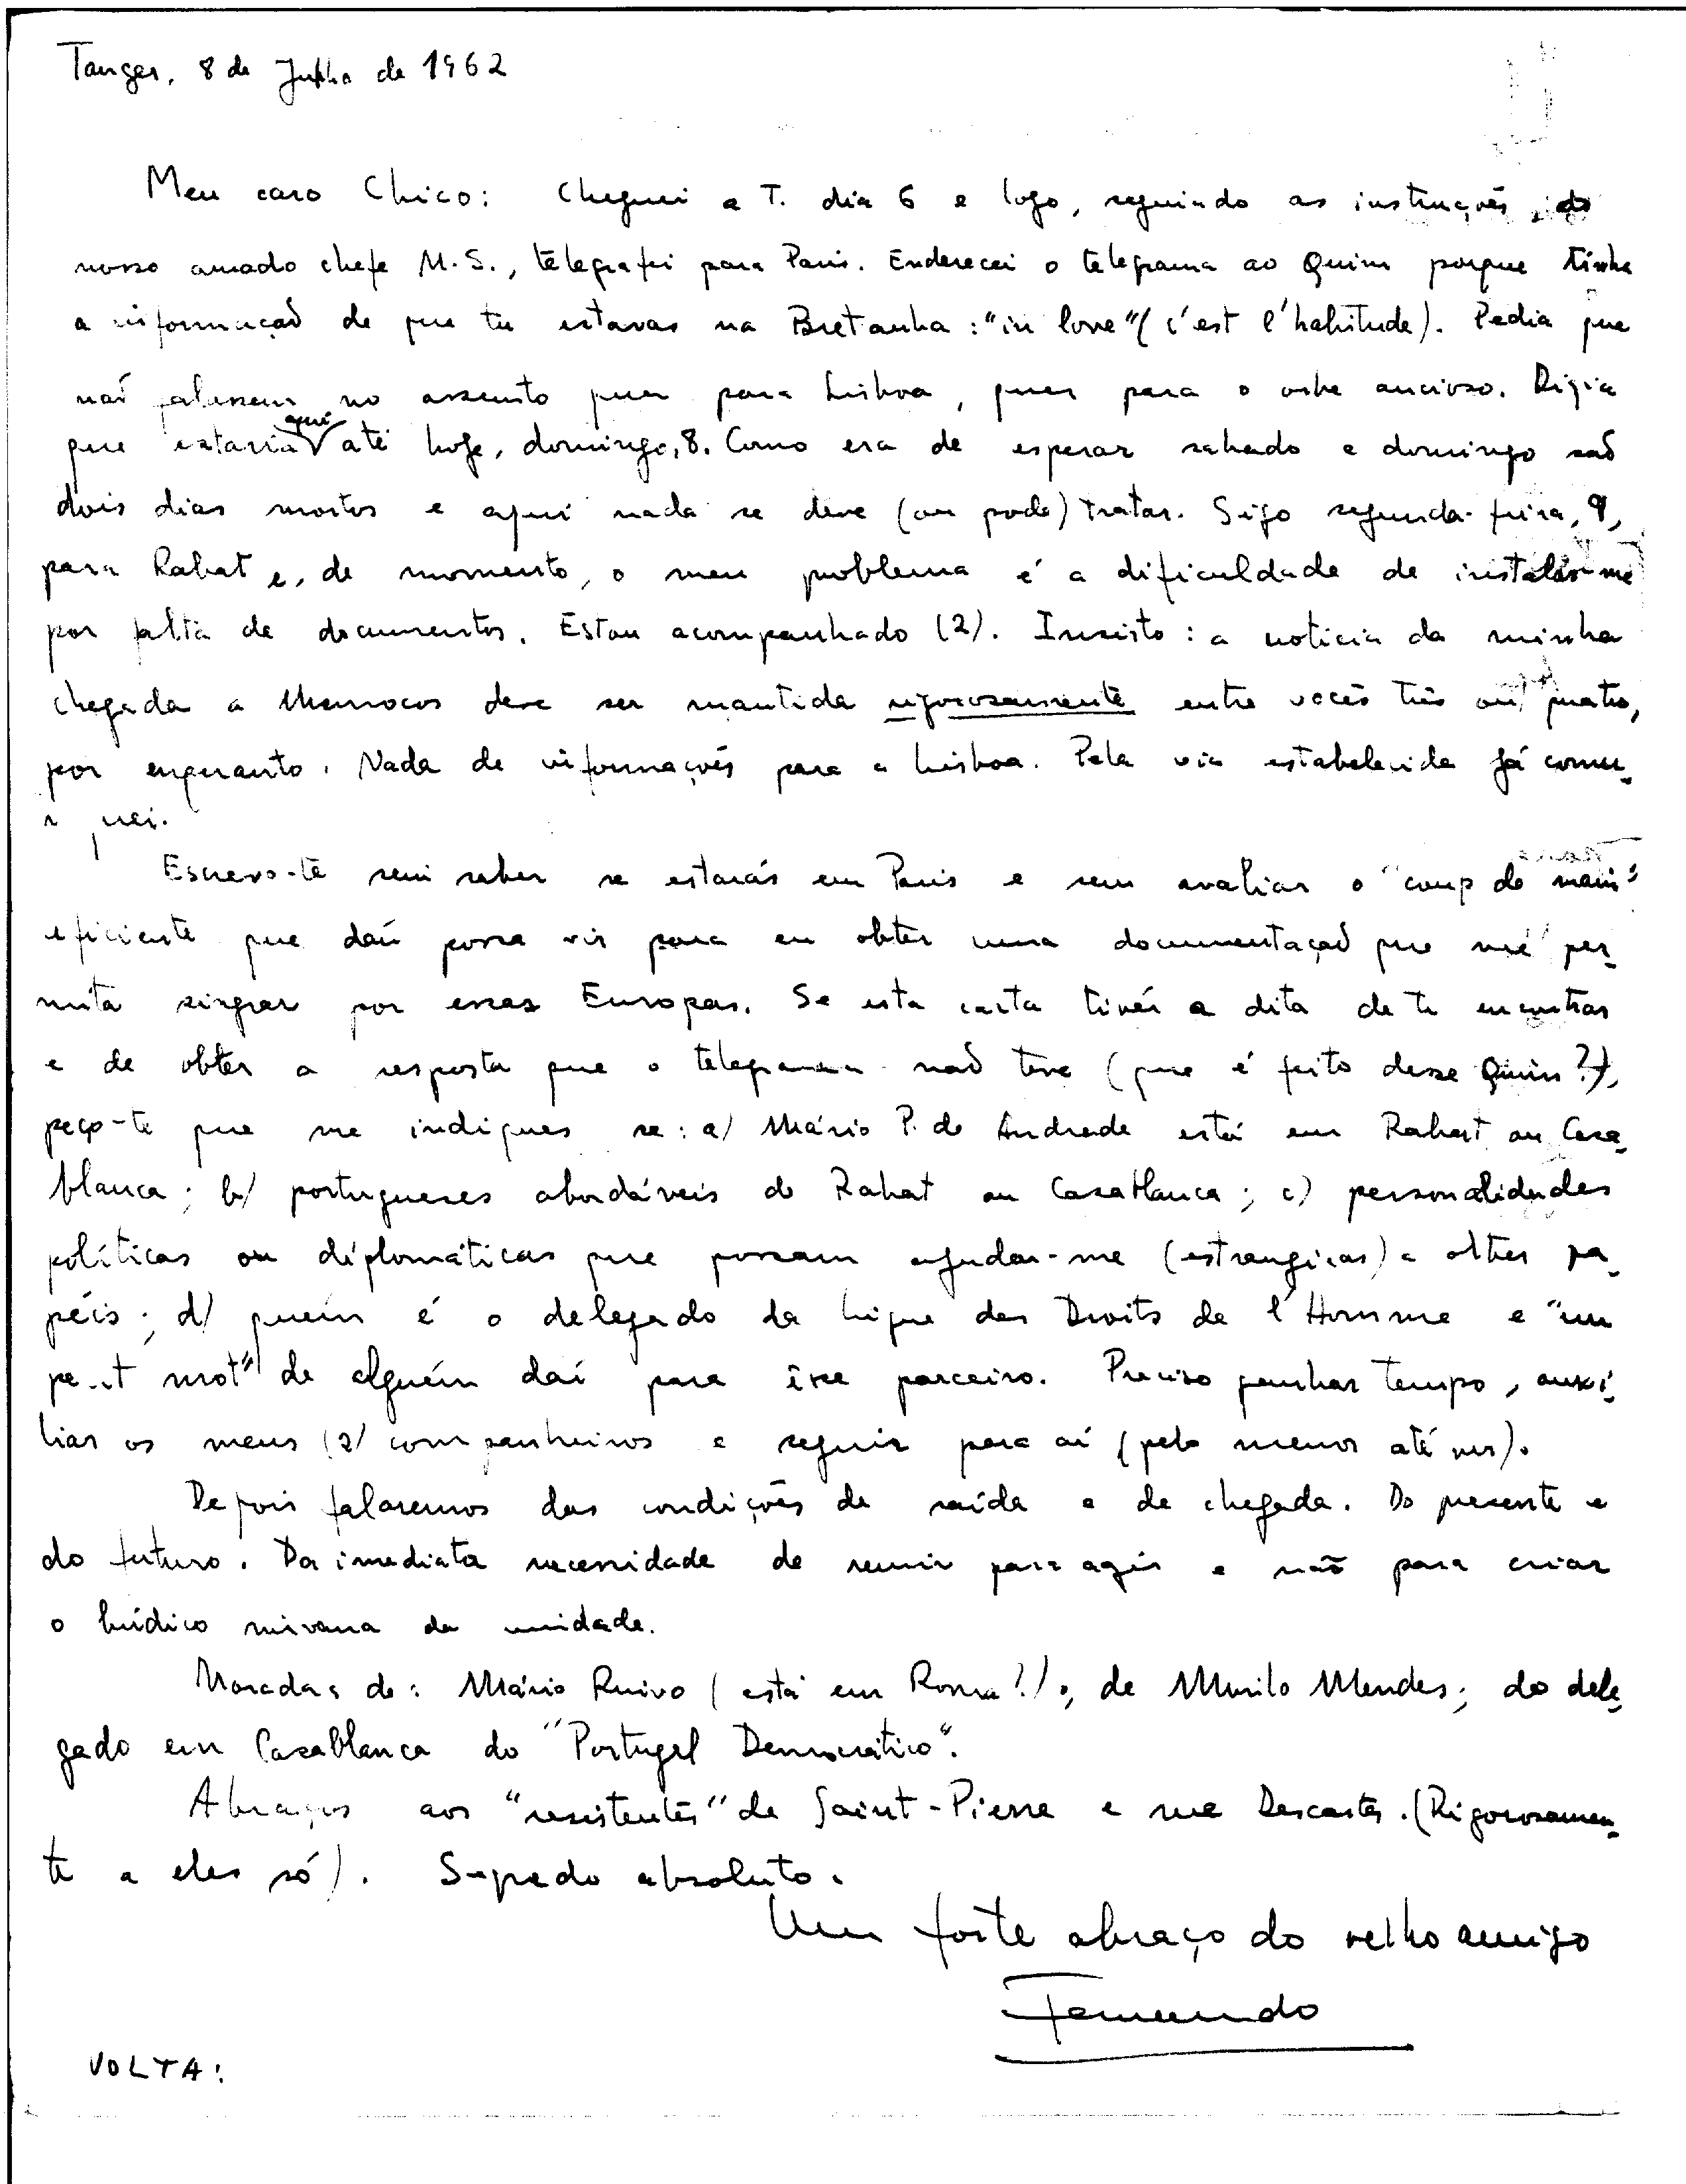 Tanger, 8 de Julho de 1962
Meu caro Chico: Cheguei a T. dia 6 e logo, seguindo as instruções do
nosso amado chefe M.S., telegrafei para Paris. Enderecei o telegrama ao Quim porque tinha
a informação de que tu estavas na Bretanha: "in love" (c'est l'habitude). Pedia que
não falassem no assunto quer para Lisboa, quer para o orbe ancioso. Dizia
que estaria aqui até hoje, domingo, 8. Como era de esperar sabado e domingo são
dois dias mortos e aqui nada se deve (ou pode) tratar. Sigo segunda-feira, 9,
para Rabat e, de momento, o meu problema é a dificuldade de instalar-me
por falta de documentos. Estou acompanhado (2). Insisto: a noticia da minha
chegada a Marrocos deve ser mantida rigorosamente entre vocês três ou quatro,
por enquanto. Nada de informações para a Lisboa. Pela via estabelecida já comu-
niquei.
Escrevo-te sem saber se estarás em Paris e sem avaliar o "coup de main"
eficiente que daí possa vir para eu obter uma documentação que me per-
mita singrar por essas Europas. Se esta carta tiver a dita de te encontrar
e de obter a resposta que o telegrama não teve (que é feito desse Quim?),
peço-te que me indiques se: a) Mário P. de Andrade está em Rabat ou Casa-
blanca; b) portugueses abordáveis de Rabat ou Casablanca; c) personalidades
políticas ou diplomáticas que possam ajudar-me (estrangeiras) a obter pa-
péis; d) quem é o delegado da Ligue des Droits de l'Homme e "un
petit mot" de alguém daí para êsse parceiro. Preciso ganhar tempo, auxi-
liar os meus (2) companheiros e seguir para aí (pelo menos até ver).
Depois falaremos das condições de saída e de chegada. Do presente e
do futuro. Da imediata necessidade de reunir para agir e não para criar
o búdico nirvana da unidade.
Moradas de: Mário Ruivo (está em Roma?); de Murilo Mendes; do dele-
gado em Casablanca do "Portugal Democrático".
Abraços aos "resistentes" de Saint-Pierre e rue Descartes. (Rigorosamen-
te a eles só). Segredo absoluto.
Um forte abraço do velho amigo
Fernando
VOLTA: